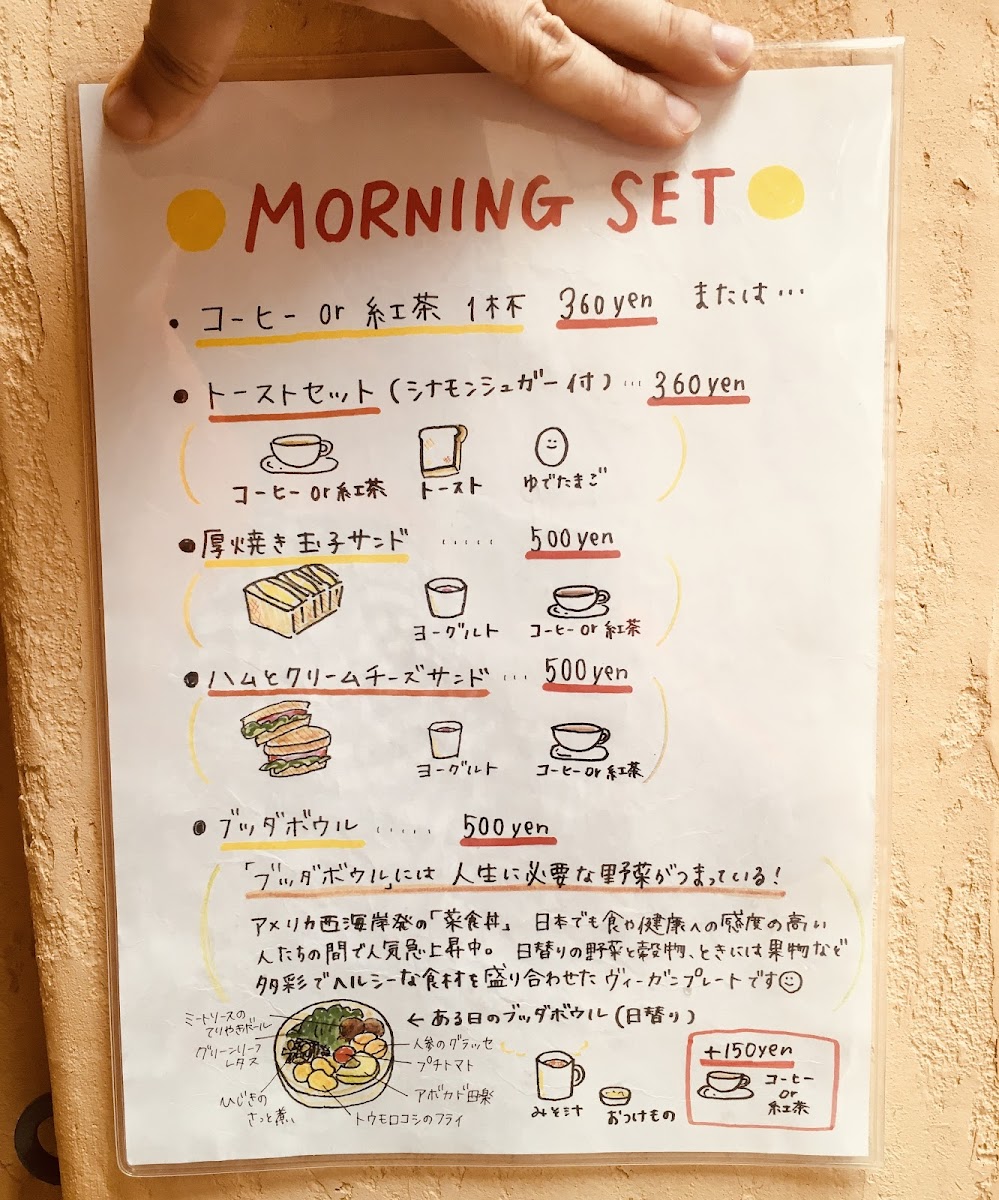 MORNING SET
• コーヒー or 紅茶 1杯 360yen または…
• トーストセット (シナモンシュガー付) … 360yen
コーヒー or 紅茶 トースト ゆでたまご
• 厚焼き玉子サンド ..... 500yen
ヨーグルト コーヒー or 紅茶
• ハムとクリームチーズサンド ... 500yen
ヨーグルト コーヒー or 紅茶
• ブッダボウル ..... 500yen
「ブッダボウル」には 人生に必要な野菜がつまっている!
アメリカ西海岸発の「菜食丼」 日本でも食や健康への感度の高い
人たちの間で人気急上昇中。 日替りの野菜と穀物、ときには果物など
多彩でヘルシーな食材を盛り合わせた ヴィーガンプレートです
← ある日のブッダボウル (日替り)
ミートソースの
てりやきボール
グリーンリーフ
レタス
ひじきの
さっと煮
人参のグラッセ
プチトマト
アボカド田楽
トウモロコシのフライ
みそ汁 おつけもの
+150yen
コーヒー
or
紅茶